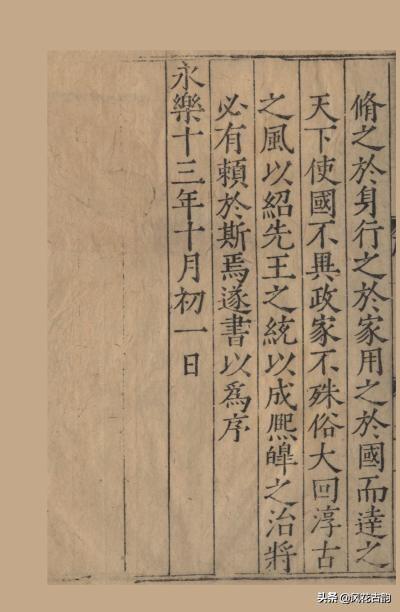 脩之於身行之於家用之於國而達之
天下使國不異政家不殊俗大回淳古
之風以紹先王之統以成熈皥之治將
必有賴於斯焉遂書以爲序
永樂十三年十月初一日
头条 @风花古韵